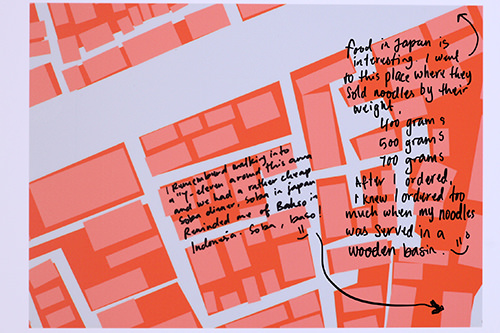 food in Japan is
interesting. I went
to this place where they
sold noodles by their
weight.
400 grams
500 grams
700 grams
After I ordered,
I knew I ordered too
much when my noodles
was served in a
wooden basin.
I Remembered walking into
a "7-eleven" around this area
and we had a rather cheap
Soba dinner. Soba in Japan
Reminded me of Bakso in
Indonesia. Soba, baso!